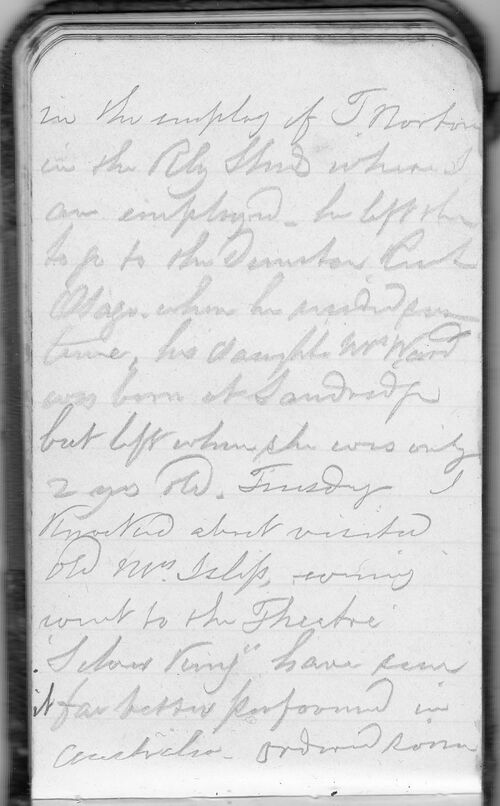 in the employ of T Norton
in the Rly Shed where I
am employed - he left then
to go to the Dunstan Rush
Otago. where he resided some
time, his daughter Mrs Ward
was born at Sandridge
but left when she was only
2 yrs old. Tuesday I
Knocked about visited
old Mrs Islip, evening
went to the Theatre
"Silver King" have seen
it far better performed in
Australia - ordered some